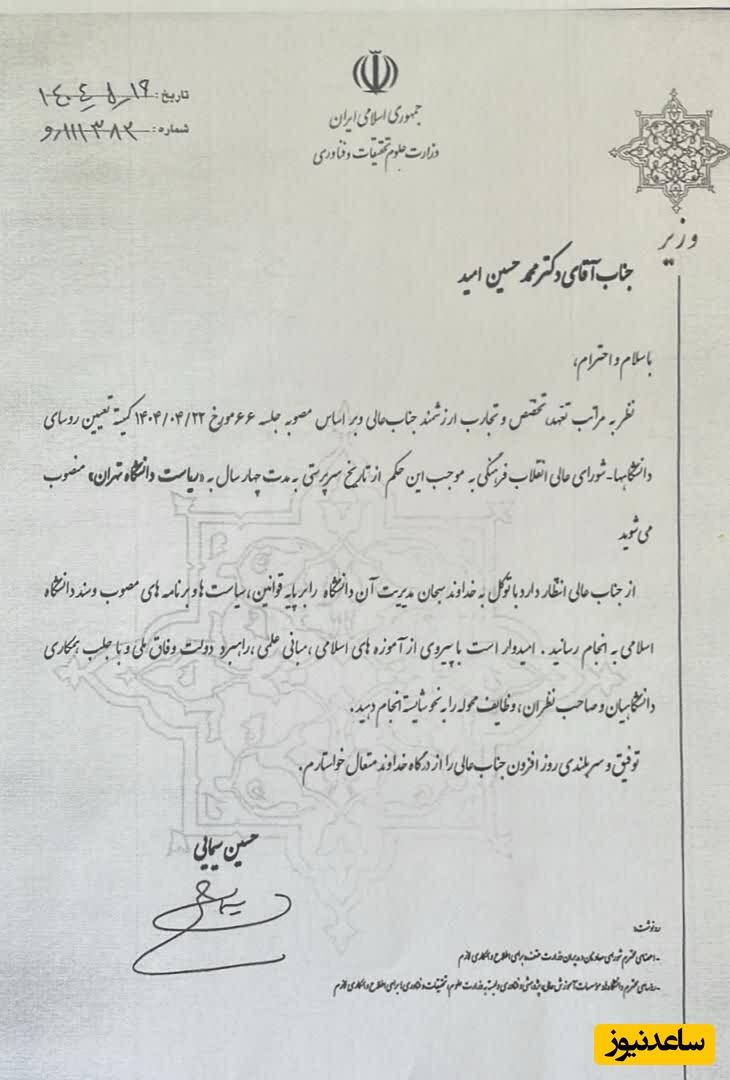 جمهوری اسلامی ایران
وزارت علوم تحقیقات و فناوری
تاریخ:
شماره:
وزیر
جناب آقای دکتر محمد حسین امید
با سلام و احترام،
نظر به مراتب تعهد، تخصص و تجارب ارزشمند جناب‌عالی و بر اساس مصوبه جلسه ۶۶ مورخ ۱۴۰۴/۰۴/۲۲ کمیته تعیین روسای
دانشگاهها-شورای عالی انقلاب فرهنگی به موجب این حکم از تاریخ سرپرستی به مدت چهار سال به «ریاست دانشگاه تهران» منصوب
می شوید
از جناب عالی انتظار دارد با توکل به خداوند سبحان مدیریت آن دانشگاه را بر پایه قوانین، سیاست ها و برنامه های مصوب و سند دانشگاه
اسلامی به انجام رسانید. امیدوار است با پیروی از آموزه های اسلامی، مبانی علمی، راهبرد دولت وفاق ملی و با جلب همکاری
دانشگاهیان و صاحب نظران، وظایف محوله را به نحو شایسته انجام دهید.
توفیق و سربلندی روز افزون جناب‌عالی را از درگاه خداوند متعال خواستارم.
حسین سیمایی
رونوشت:
-اعضای محترم شورای معاونان و مدیران وزارت متبوع برای اطلاع و همکاری لازم
-روسای محترم دانشگاه‌ها، موسسات آموزش عالی، پژوهشی و فناوری وابسته به وزارت علوم، تحقیقات و فناوری برای اطلاع و همکاری لازم
ساعدنیوز